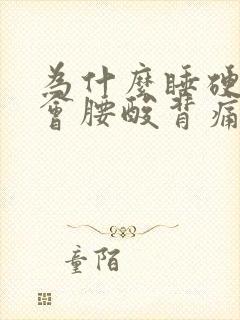 為什麼睡硬
會腰酸背痛
童陌